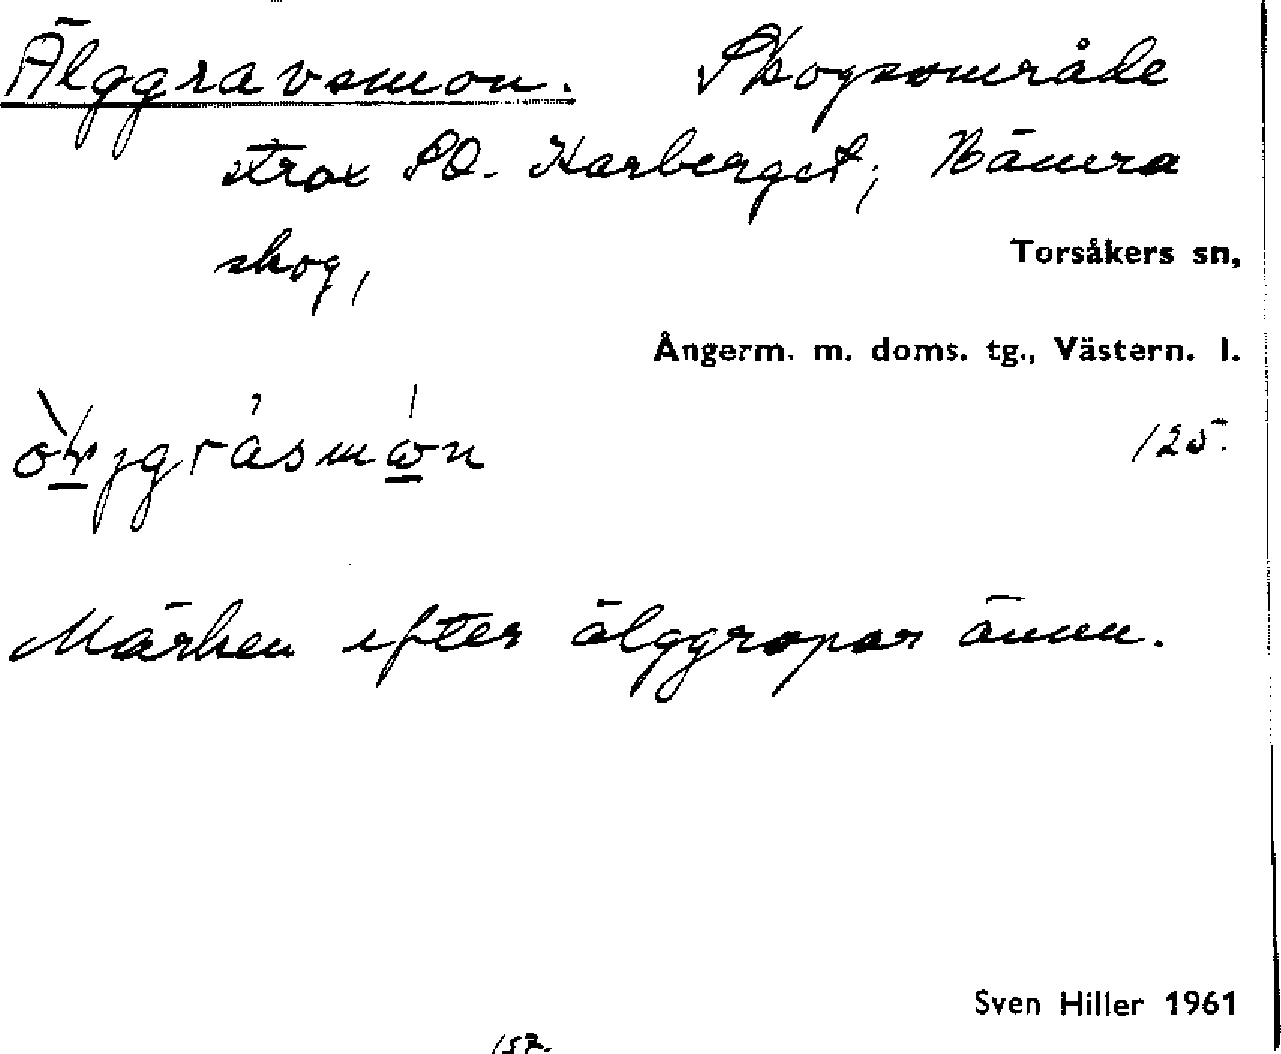 Älggravsmon. Skogsområde
strax SO. Karberget; Bämra
skog,
Torsåkers sn,
Ångerm. m. doms. tg., Västern. l.
125.
Märken efter älggropar ännu.
Sven Hiller 1961
157.